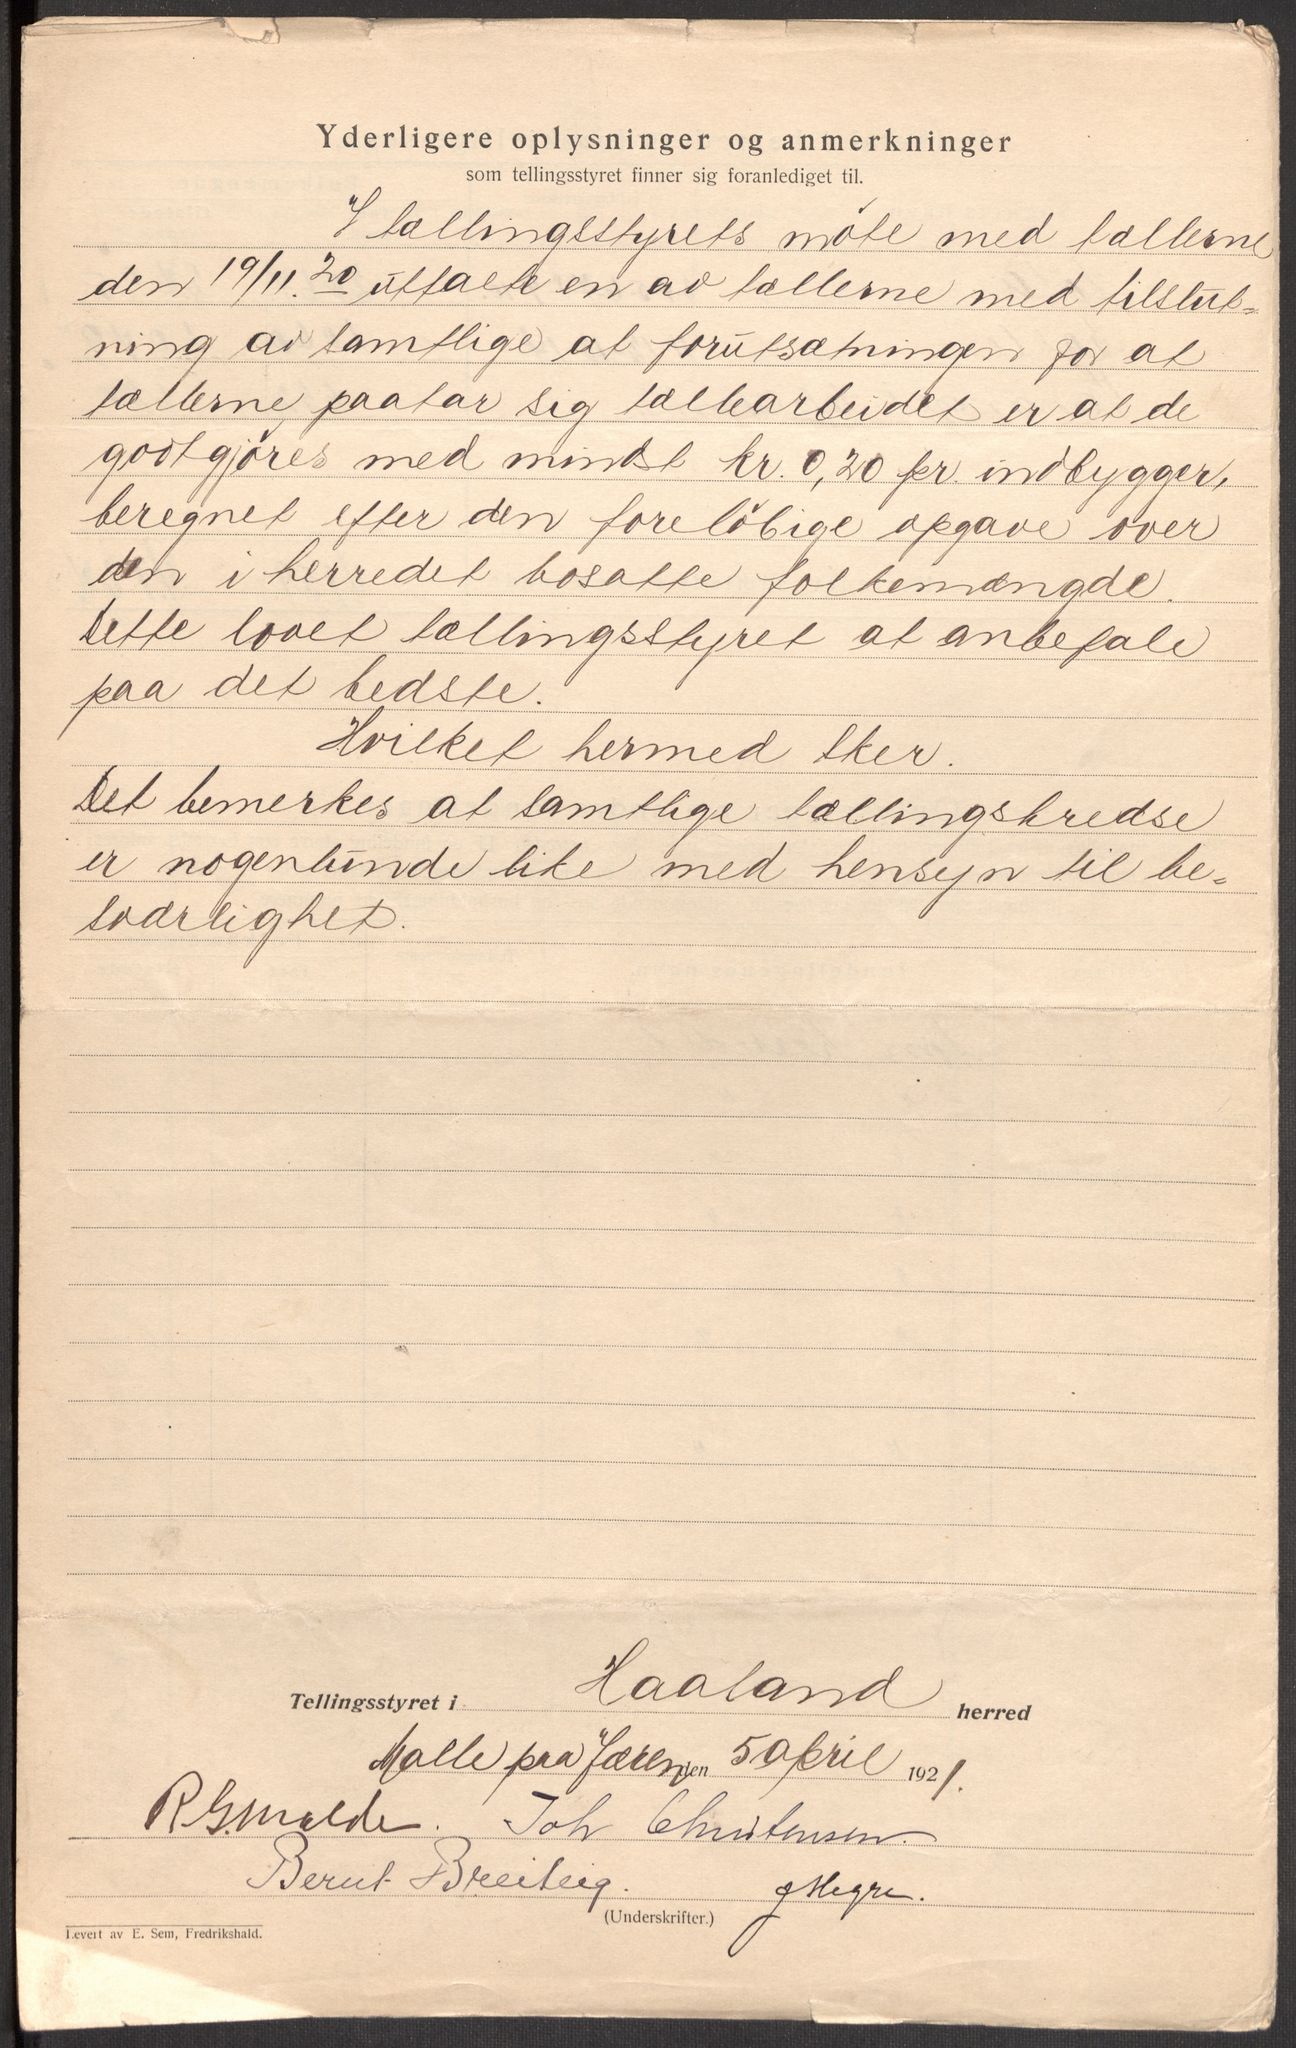 Yderligere oplysninger og anmerkninger
som tellingsstyret finner sig foranlediget til.
I tællingsstyrets möte med tællerne
den 19/11.20 uttalte en av tællerne med tilslut-
ning av samtlige at forutsætningen for at
tællerne paatar sig tællearbeidet er at de
godtgjöres med mindst kr. 0,20 pr. indbygger,
beregnet efter den forelöbige opgave over
den i herredet bosatte folkemængde.
Dette lovet tællingsstyret at anbefale
paa det bedste.
Hvilket hermed sker.
Det bemerkes at samtlige tællingskredse
er nogenlunde like med hensyn til be-
sværlighet.
Tellingsstyret i Haaland herred
Malle paa Jæren den 5 April 1921.
R G. Malde. Joh Christensen.
Bernt Breiteig. J Hegre.
(Underskrifter.)
Levert av E. Sem, Fredrikshald.